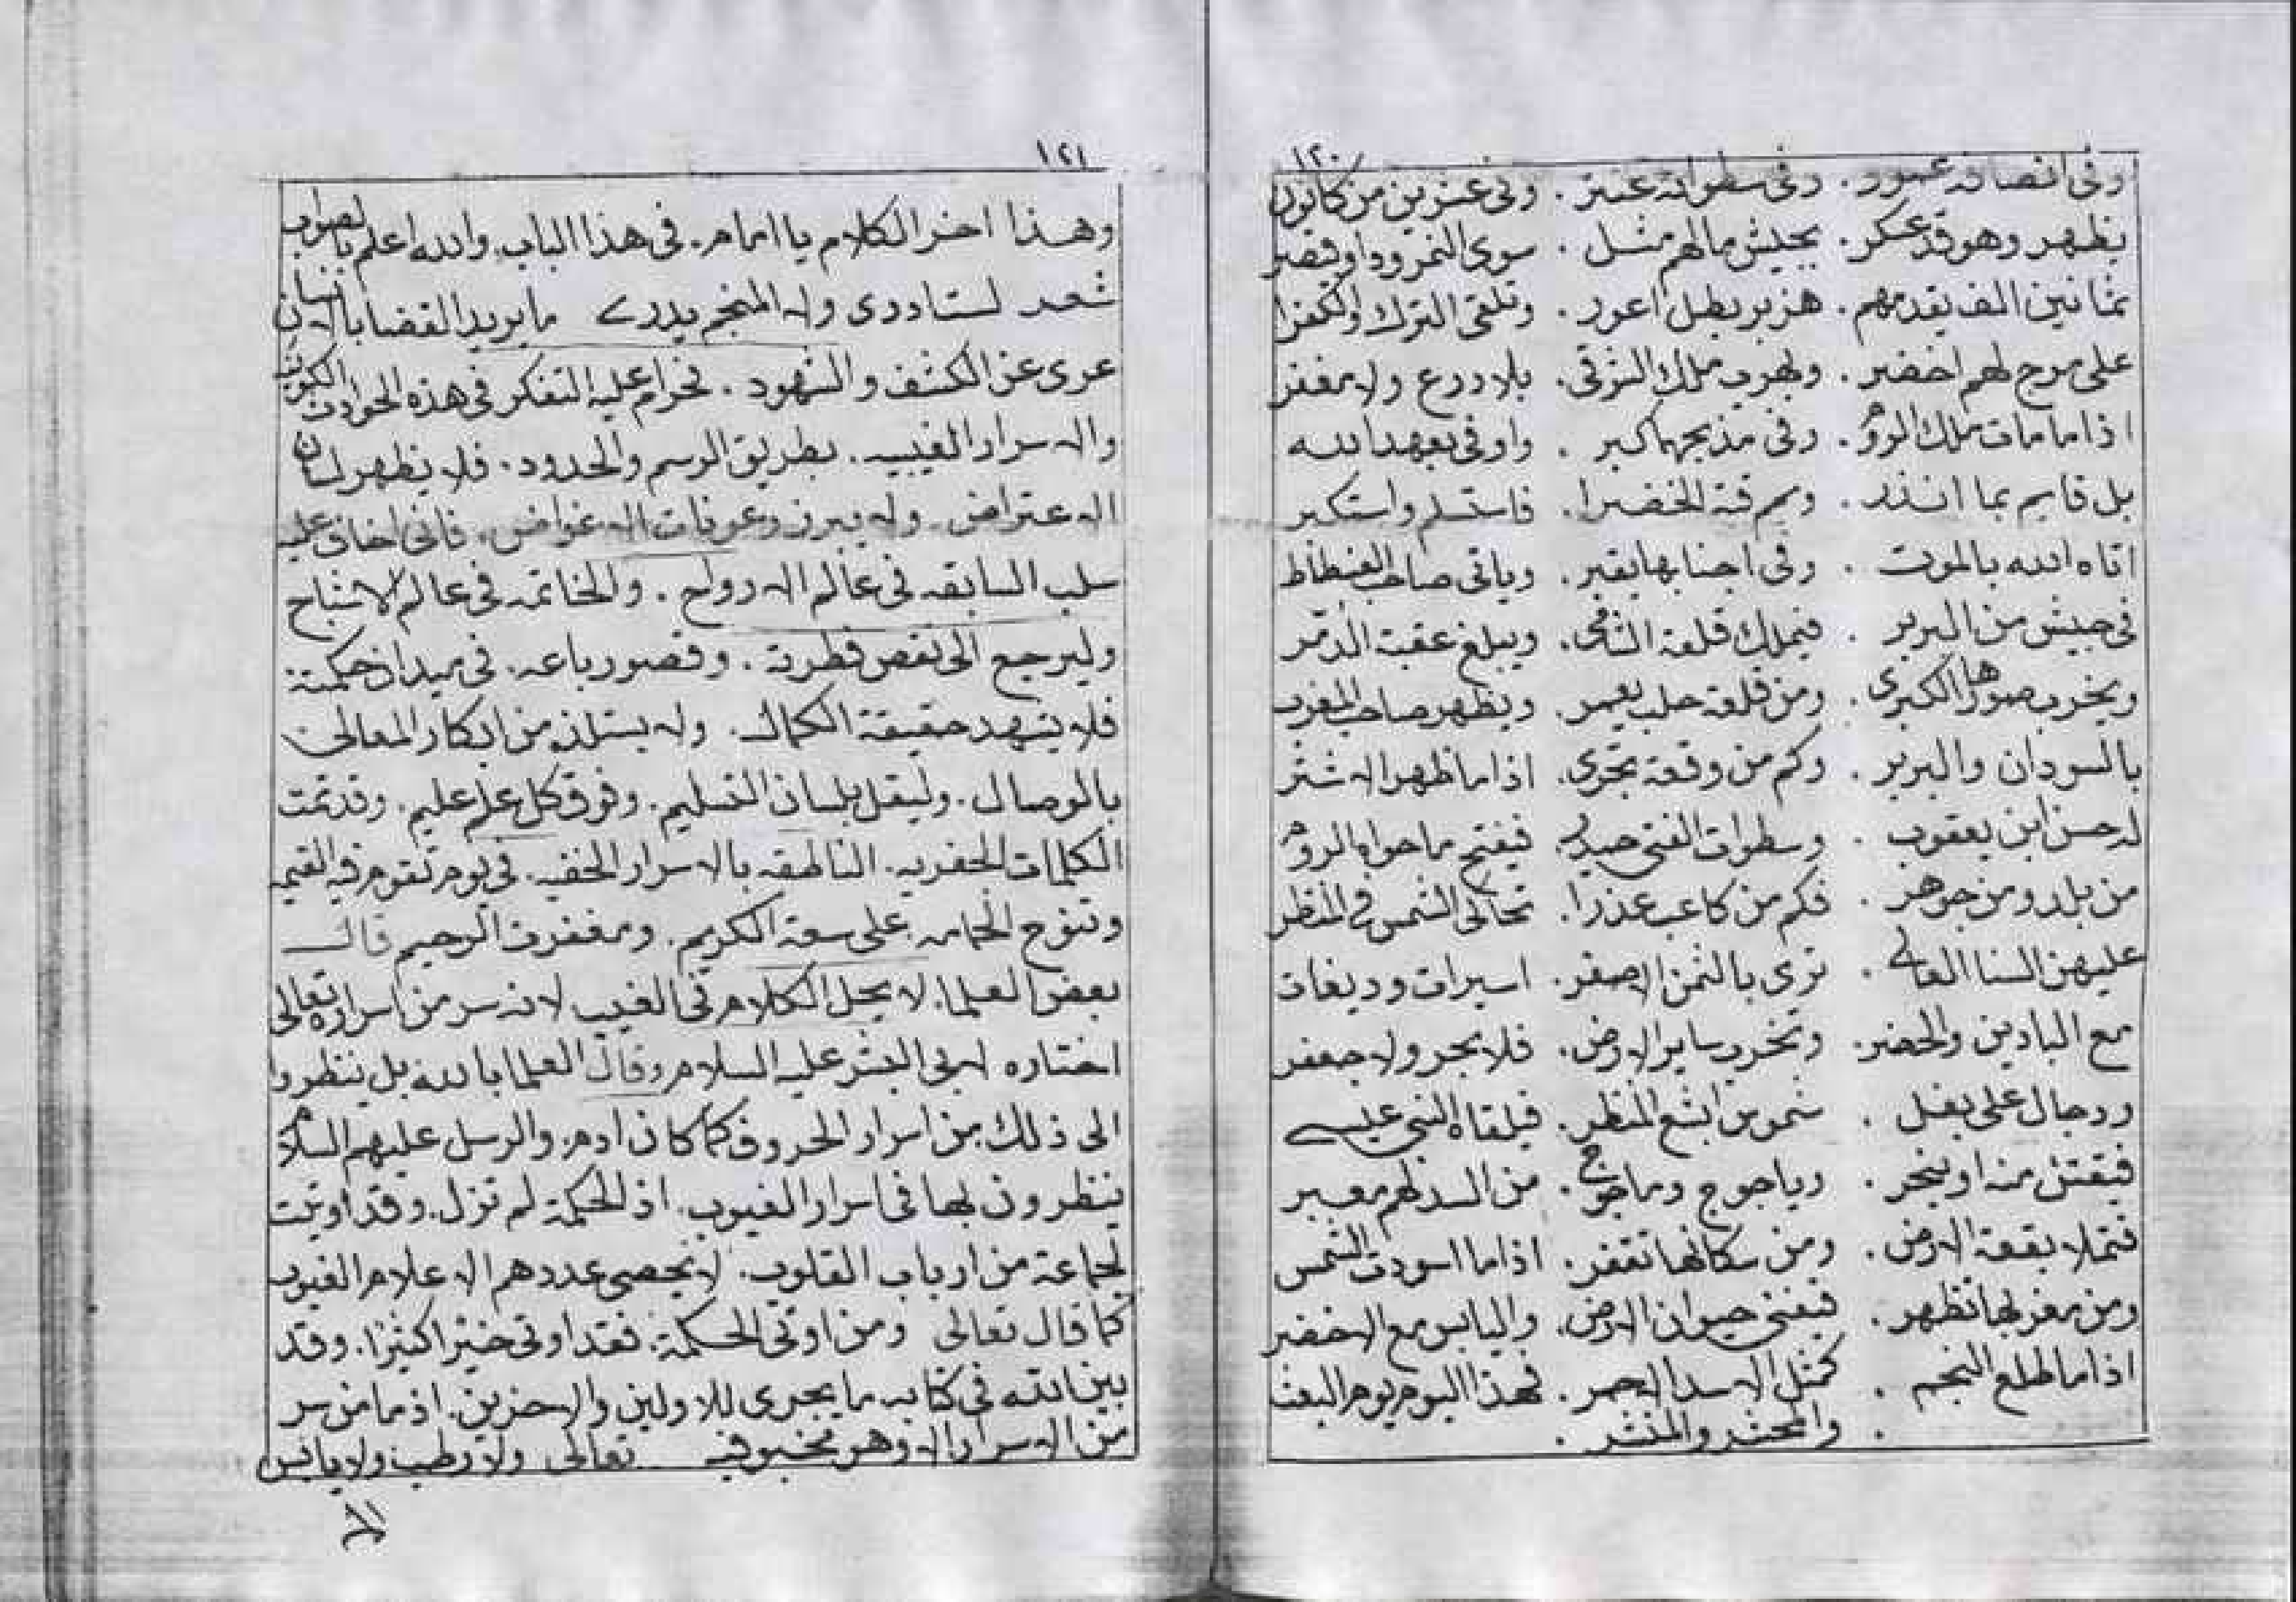 ١٢٠
وفى انصافه عمود . وفى سطواته عنتر . وفى عشرين من كانون
يظهر وهو قد عكر . بجيش مالهم مثل . سوى النمرود او قيصر
ثمانين الف يقدمهم . هزبر بطل اعور . وتلقى الترك والكفرا
على مرج لهم اخضر . ويهرب ملك النوقى . بلا درع ولا مغفر
اذا ما مات ملك الروم . وفى مذبحها كبر . واوفى بعهد الله
بل قايم بما انذر . وسرقة الخضرا . فاستسلم واستكبر
اتاه الله بالموت . وفى اجنابها يقبر . وياتى صاحب الفسطاط
فى جيش من البربر . فيملك قلعة الشام . ويبلغ عقبة الدمر
ويخرب صورها الكبرى . ومن قلعة حلب يعمر . ويظهر صاحب المغرب
بالسودان والبربر . وكم من وقعة تجرى . اذا ما ظهر الاشتر
له حسن ابن يعقوب . وسطوات الفتى حيدر . فيفتح ما حواه الروم
من بلد ومن جوهر . فكم من كاعب عذرا . تحاكى الشمس فى المنظر
عليهن السنا العالى . ترى بالثمن الاصفر . اسيرات وديعات
مع البادين والحضر . وتخرب ساير الارض . فلا بحر ولا جعفر
ودجال على بغل . شموس ابشع المنظر . فيلقاه النبى عيسى
فيقتل منه او ينحر . وياجوج وماجوج . من السد لهم معبر
فتملا بقعة الارض . ومن سكانها تقفر . اذا ما اسودت الشمس
ومن مغربها تظهر . فيفنى حيوان الارض . واليابس مع الاخضر
اذا ما طلع النجم . كمثل الاسد الاحمر . فهذا اليوم يوم البعث
. والمحشر والمنشر .
١٢١
وهذا اخر الكلام يا امام . فى هذا الباب والله اعلم بالصواب
شعر لست ادرى ولا المنجم يدرى ما يريد القضا بالانسان
عرى عن الكشف والشهود . فحرام عليه التفكر فى هذه الحوادث الكونيه
والاسرار الغيبيه . بطريق الرسم والحدود . فلا يظهر لسان
الاعتراض . ولا يبرز وعرفات الاغراض . فانى اخاف عليه
سلب السابقه فى عالم الارواح . والخاتمه فى عالم الاشباح
وليرجع الى نقص فطرته . وقصور باعه . فى ميدان حكمته
فلا يشهد حقيقة الكمال . ولا يستلذ من ابكار المعالى
بالوصال . وليقل بلسان التسليم . وفوق كل علم عليم . وقد تمت
الكلمات الجفريه . الناطقه بالاسرار الخفيه . فى يوم تقوم فيه القيمه
وتنوح الحمامه على سعة الكريم . ومغفرت الرحيم قال
بعض العلما . لا يحل الكلام فى الغيب لانه سر من اسراره تعالى
اختاره لابى البشر عليه السلام وقال العلما بالله بل ينظروا
الى ذلك من اسرار الحروف كما كان ادم . والرسل عليهم السلام
ينظرون بها فى اسرار الغيوب . اذ الحكمة لم تزل . وقد اوتيت
لجماعة من ارباب القلوب . لا يحصى عددهم الا علام الغيوب
كما قال تعالى ومن اوتى الحكمة . فقد اوتى خيرا كثيرا . وقد
بين الله فى كتابه ما يجرى للاولين والاخرين . اذ ما من سر
من الاسرار الا وهو مخبو فيه تعالى ولا رطب ولا يابس